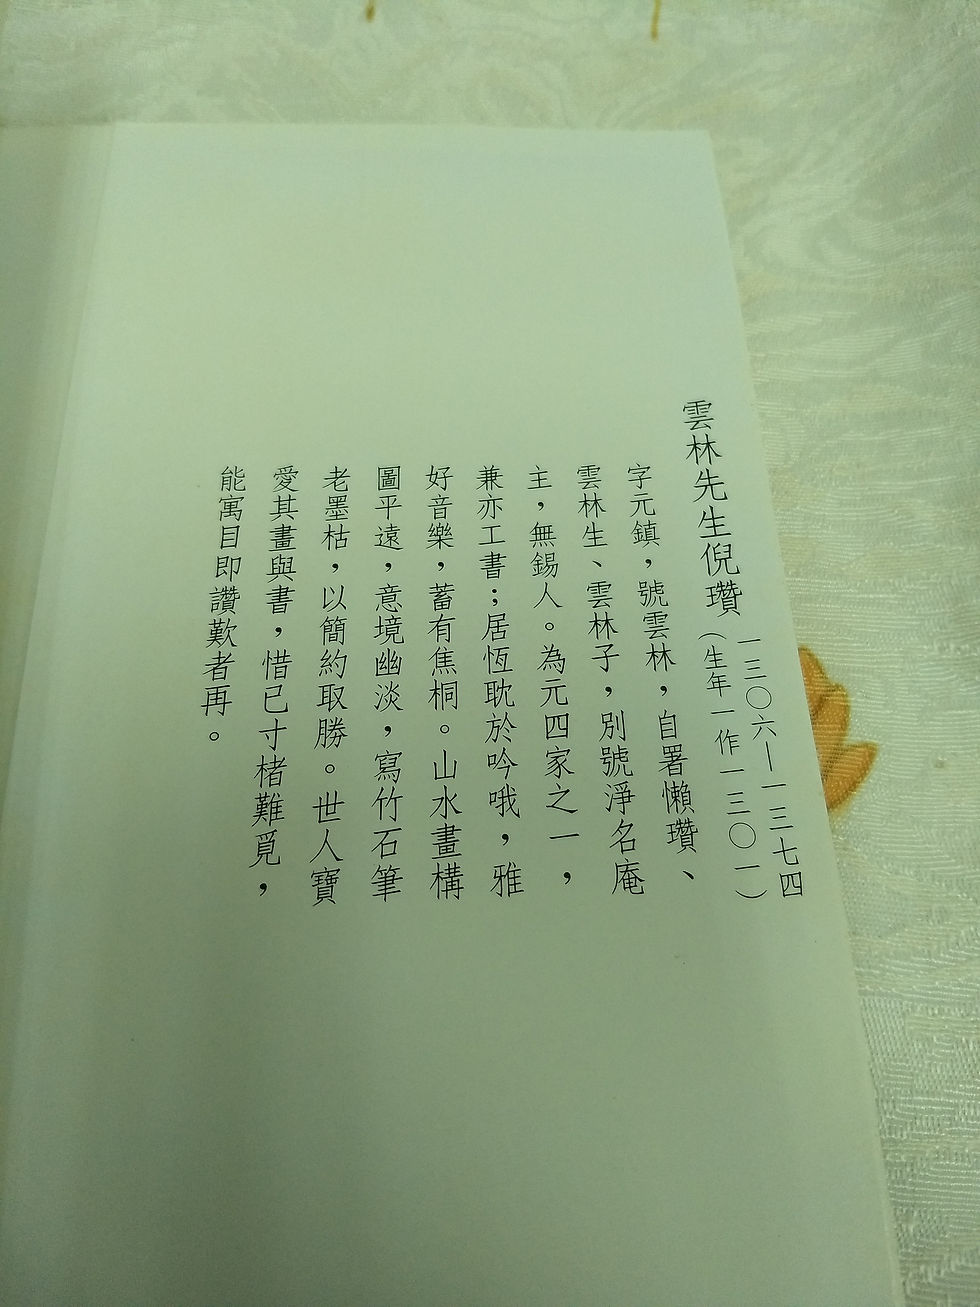 雲林先生倪瓚 一三〇六—一三七四
（生年一作一三〇一）
字元鎮，號雲林，自署懶瓚、
雲林生、雲林子，別號淨名庵
主，無錫人。為元四家之一，
兼亦工書；居恆耽於吟哦，雅
好音樂，蓄有焦桐。山水畫構
圖平遠，意境幽淡，寫竹石筆
老墨枯，以簡約取勝。世人寶
愛其畫與書，惜已寸楮難覓，
能寓目即讚歎者再。